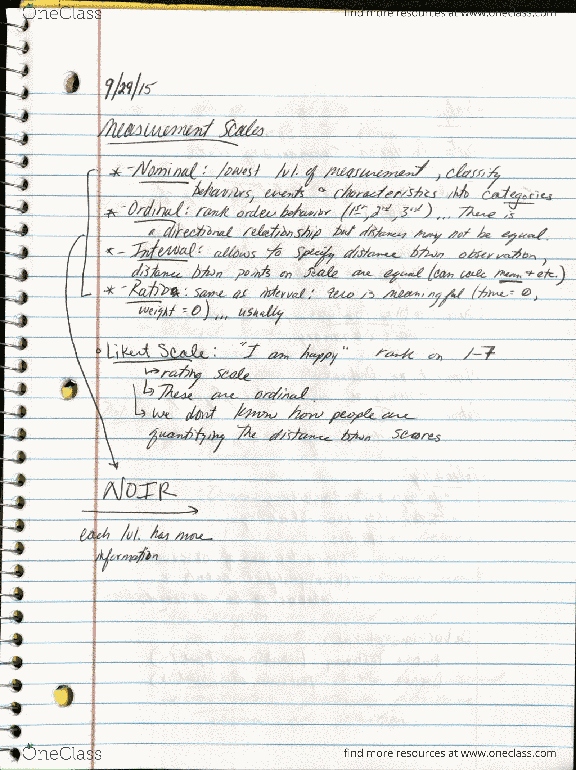 OneClass
find more resources at www.oneclass.com
9/29/15
Measurement Scales
* - Nominal: lowest lvl. of measurement, classify
behaviors, events characteristics into categories
* - Ordinal: rank order behavior (1st, 2nd, 3rd)... There is
a directional relationship but distances may not be equal.
* - Interval: allows to specify distance btwn observation,
distance btwn points on scale are equal (can calc mean + etc.)
* - Ratio: same as interval: zero is meaningful (time = 0,
weight = 0)... usually
Likert Scale: "I am happy" rank on 1-7
↳ rating scale
↳ These are ordinal.
↳ we dont know how people are
quantifying the distance btwn scores
NOIR
each lvl. has more
information
OneClass
find more resources at www.oneclass.com